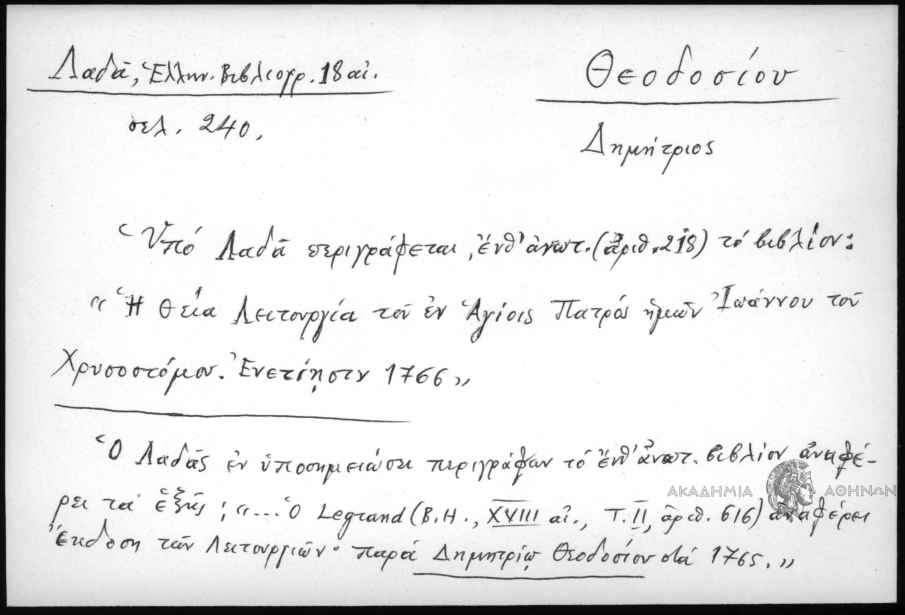 Λαδᾶ, Ἑλλην. Βιβλιογρ. 18 αἰ.
σελ. 240.
Θεοδοσίου
Δημήτριος
Ὑπό Λαδᾶ περιγράφεται, ἔνθ' ἀνωτ. (ἀριθ. 218) τό βιβλίον:
"Ἡ Θεία Λειτουργία τοῦ ἐν Ἁγίοις Πατρός ἡμῶν Ἰωάννου τοῦ
Χρυσοστόμου. Ἐνετίησιν 1766"
Ὁ Λαδᾶς ἐν ὑποσημειώσει περιγράφων τό ἔνθ' ἀνωτ. βιβλίον ἀναφέ-
ρει τά ἑξῆς: "... Ὁ Legrand (B.H., XVIII αἰ., T. II, ἀριθ. 616) ἀναφέρει
ἔκδοση τῶν Λειτουργιῶν· παρά Δημητρίῳ Θεοδοσίου στά 1765."
ΑΚΑΔΗΜΙΑ ΑΘΗΝΩΝ